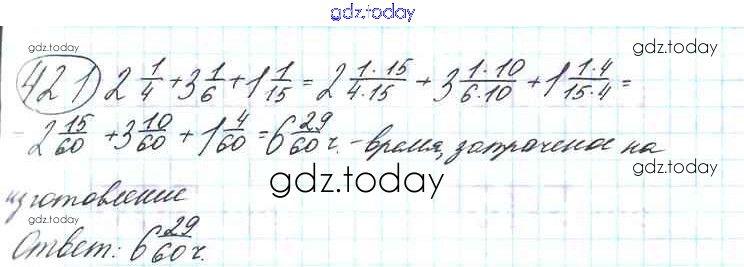 gdz.today
gdz.today gdz.today
421 2 1/4 + 3 1/6 + 1 1/15 = 2 1·15/4·15 + 3 1·10/6·10 + 1 1·4/15·4 =
- 2 15/60 + 3 10/60 + 1 4/60 = 6 29/60 ч. - время, затраченное на
gdz.today
изготовление
gdz.today gdz.today
Ответ: 6 29/60 ч.